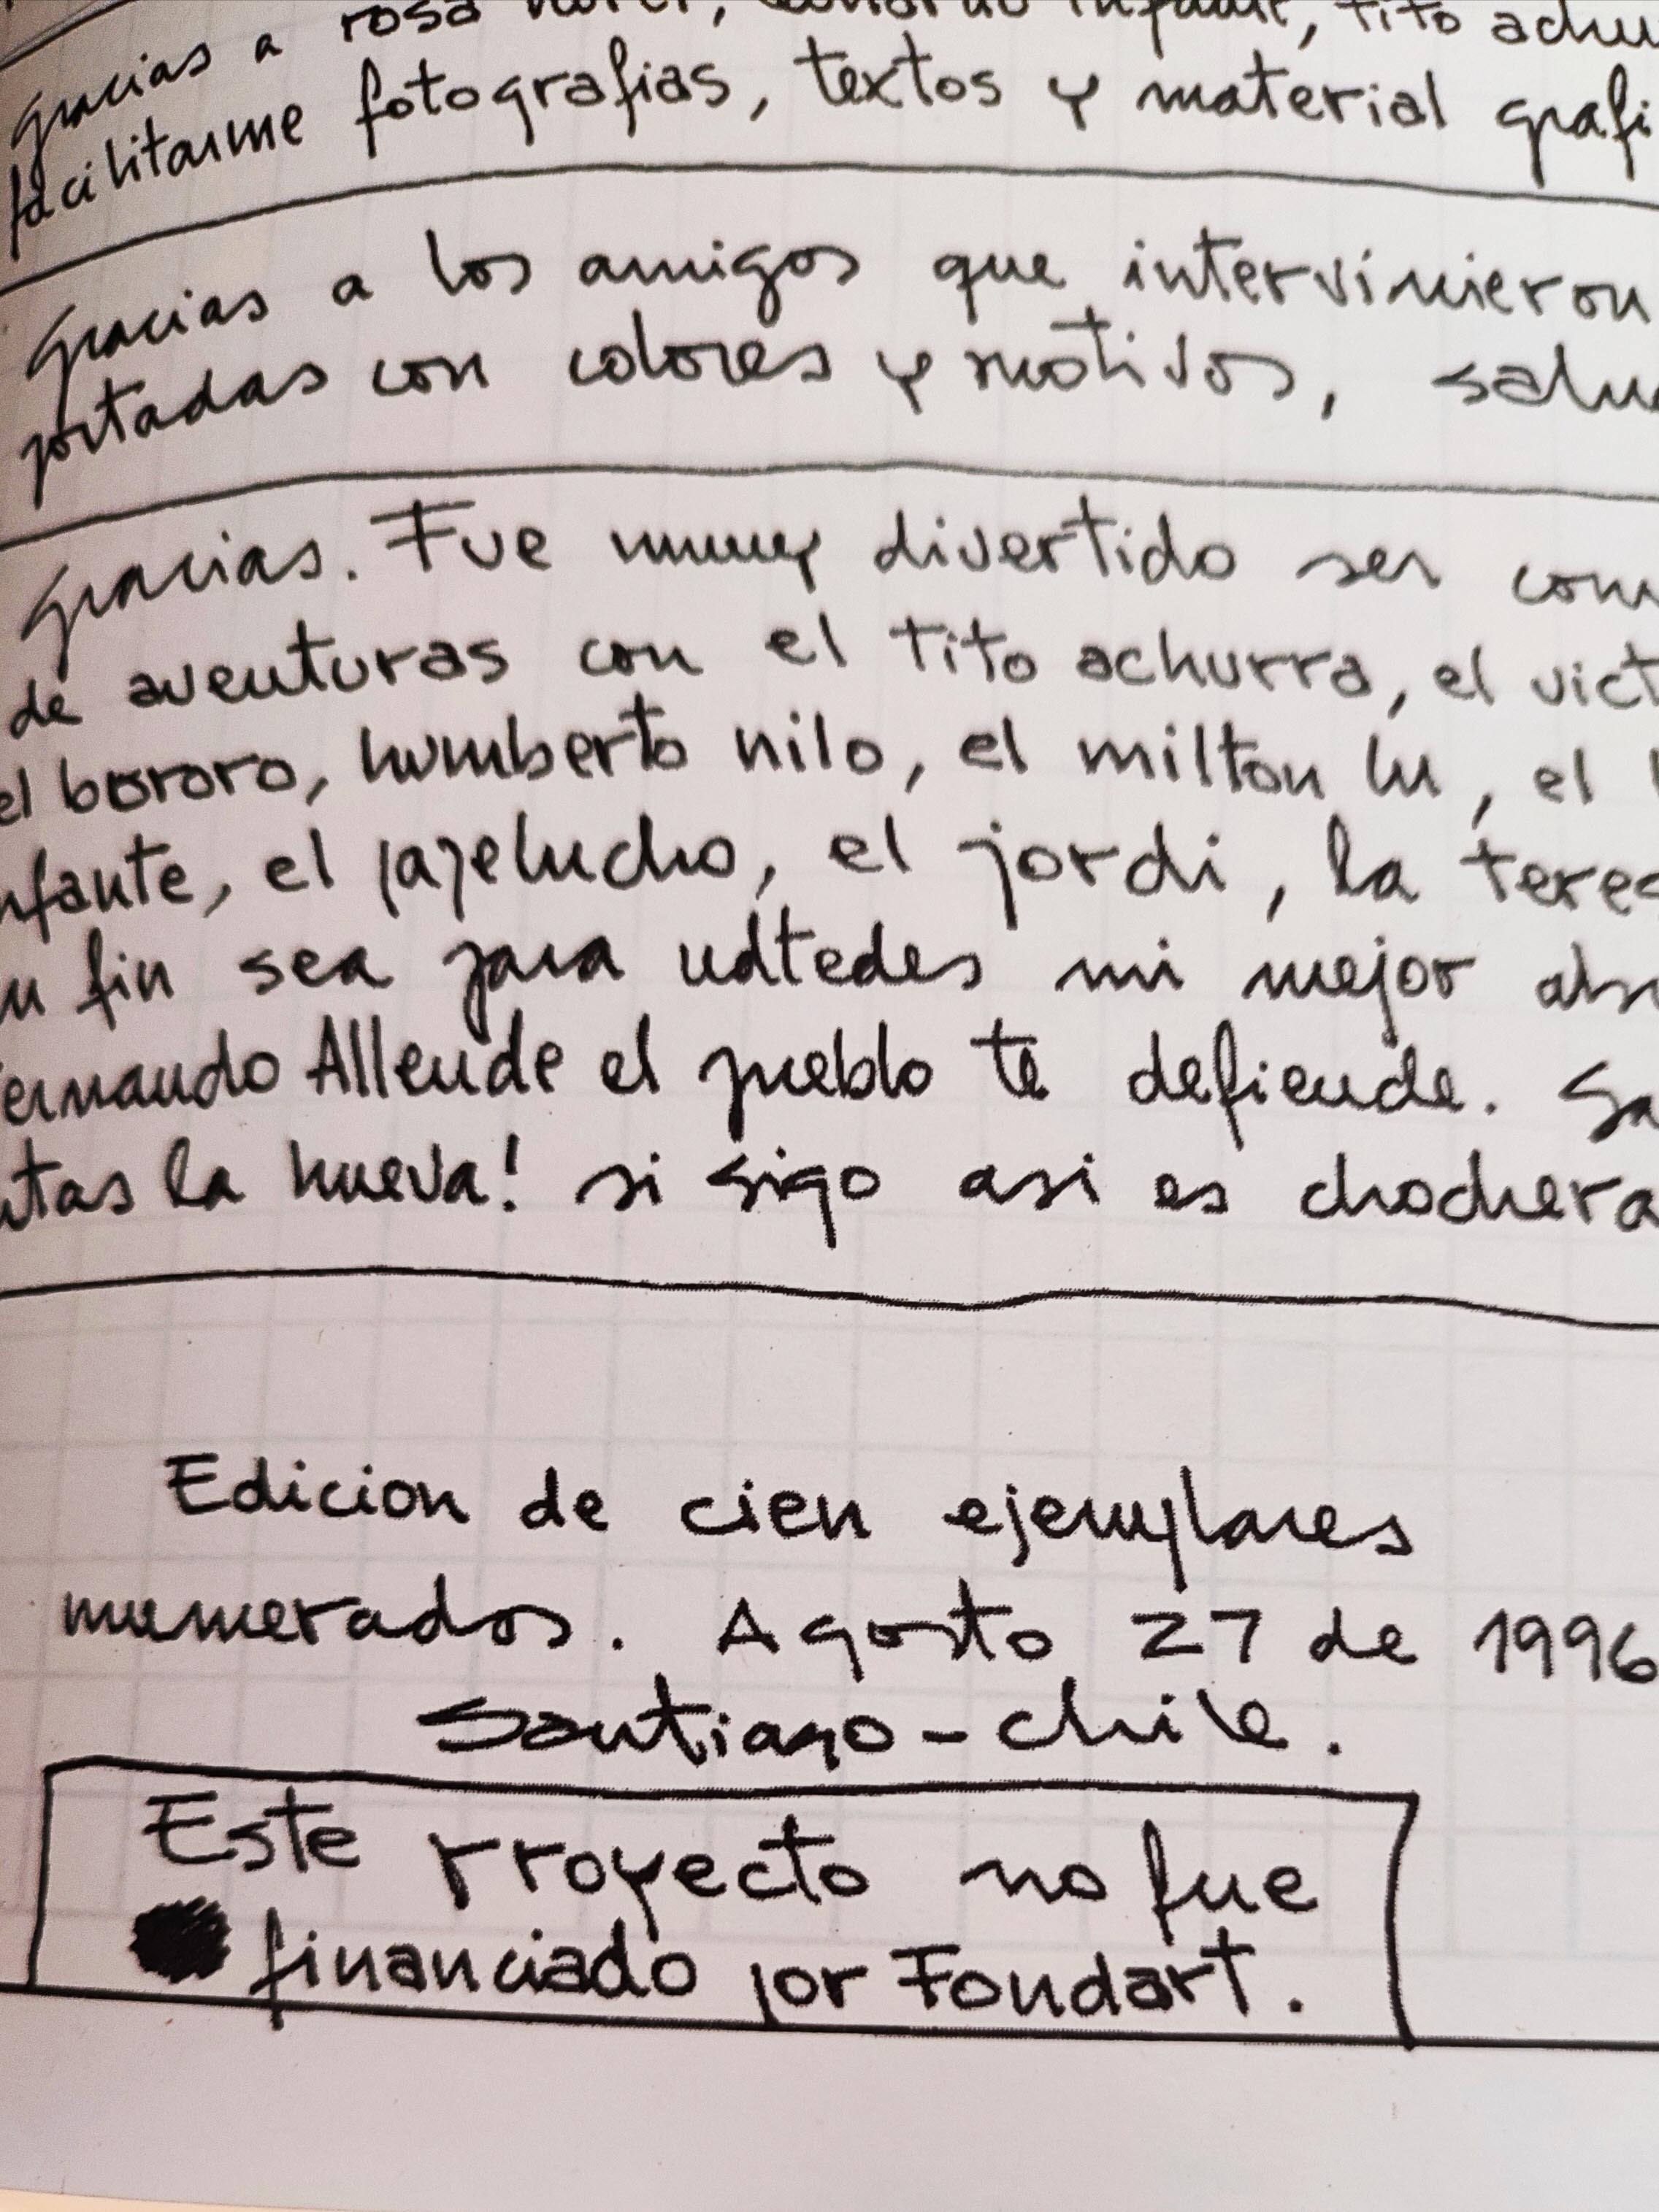 gracias a rosa
facilitarme fotografias, textos y material grafi
gracias a los amigos que intervinieron
portadas con colores y motivos, salu
gracias. Fue muuuy divertido ser com
de aventuras con el tito achurra, el vict
el bororo, humberto nilo, el milton lu, el
nfante, el papelucho, el jordi, la teres
n fin sea para udtedes mi mejor abr
ernando Allende el pueblo te defiende. Sa
ntas la nueva! si sigo asi es chochera
Edicion de cien ejemplares
numerados. Agosto 27 de 1996
Santiago-chile.
Este proyecto no fue
financiado por Fondart.